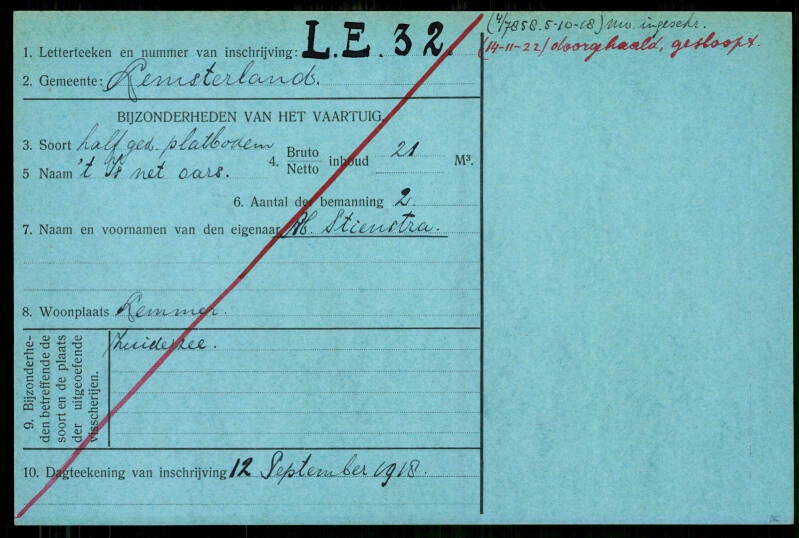 1. Letterteeken en nummer van inschrijving: L.E. 32.
2. Gemeente: Lemsterland.
BIJZONDERHEDEN VAN HET VAARTUIG.
3. Soort half ged. platbodem
4. Bruto Netto inhoud 21 M³.
5 Naam 't Is net oars.
6. Aantal der bemanning 2
7. Naam en voornamen van den eigenaar H. Stienstra.
8. Woonplaats Lemmer.
9. Bijzonderhe-
den betreffende de
soort en de plaats
der uitgeoefende
visscherijen.
Zuiderzee.
10. Dagteekening van inschrijving 12 September 1918.
(4/7858. 5-10-18) ingeschr.
(14-11-22) doorgehaald, gesloopt.